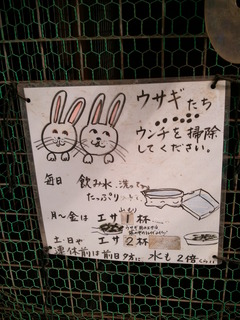 ウサギたち
ウンチを掃除
してください。
毎日 飲み水 洗って
たっぷり
月～金は エサ 1杯
土・日や エサ 2杯
連休前は前日夕方に 水も2倍くらい